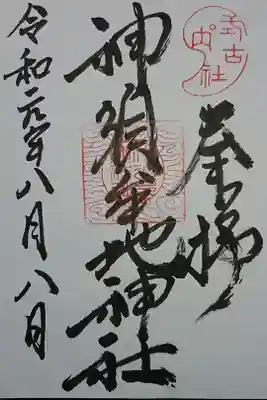 式内
古社
奉拝
神須牟地神社
令和元年八月八日